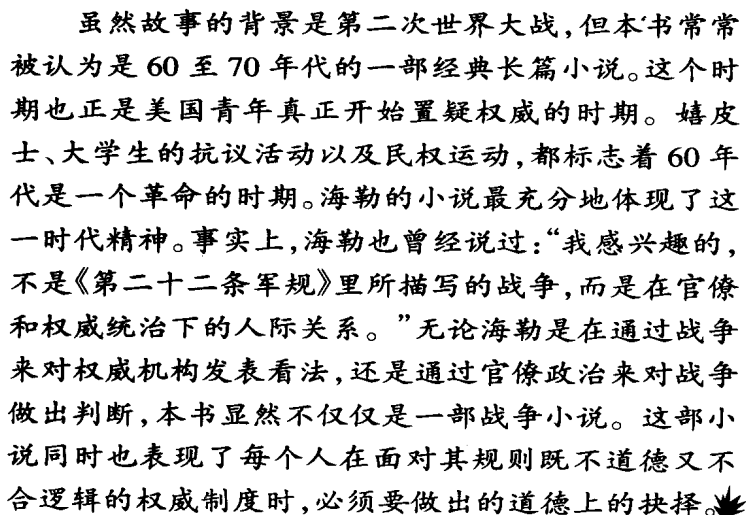 虽然故事的背景是第二次世界大战,但本书常常
被认为是 60 至 70 年代的一部经典长篇小说。这个时
期也正是美国青年真正开始置疑权威的时期。嬉皮
士、大学生的抗议活动以及民权运动,都标志着 60 年
代是一个革命的时期。海勒的小说最充分地体现了这
一时代精神。事实上,海勒也曾经说过:“我感兴趣的,
不是《第二十二条军规》里所描写的战争,而是在官僚
和权威统治下的人际关系。”无论海勒是在通过战争
来对权威机构发表看法,还是通过官僚政治来对战争
做出判断,本书显然不仅仅是一部战争小说。这部小
说同时也表现了每个人在面对其规则既不道德又不
合逻辑的权威制度时,必须要做出的道德上的抉择。